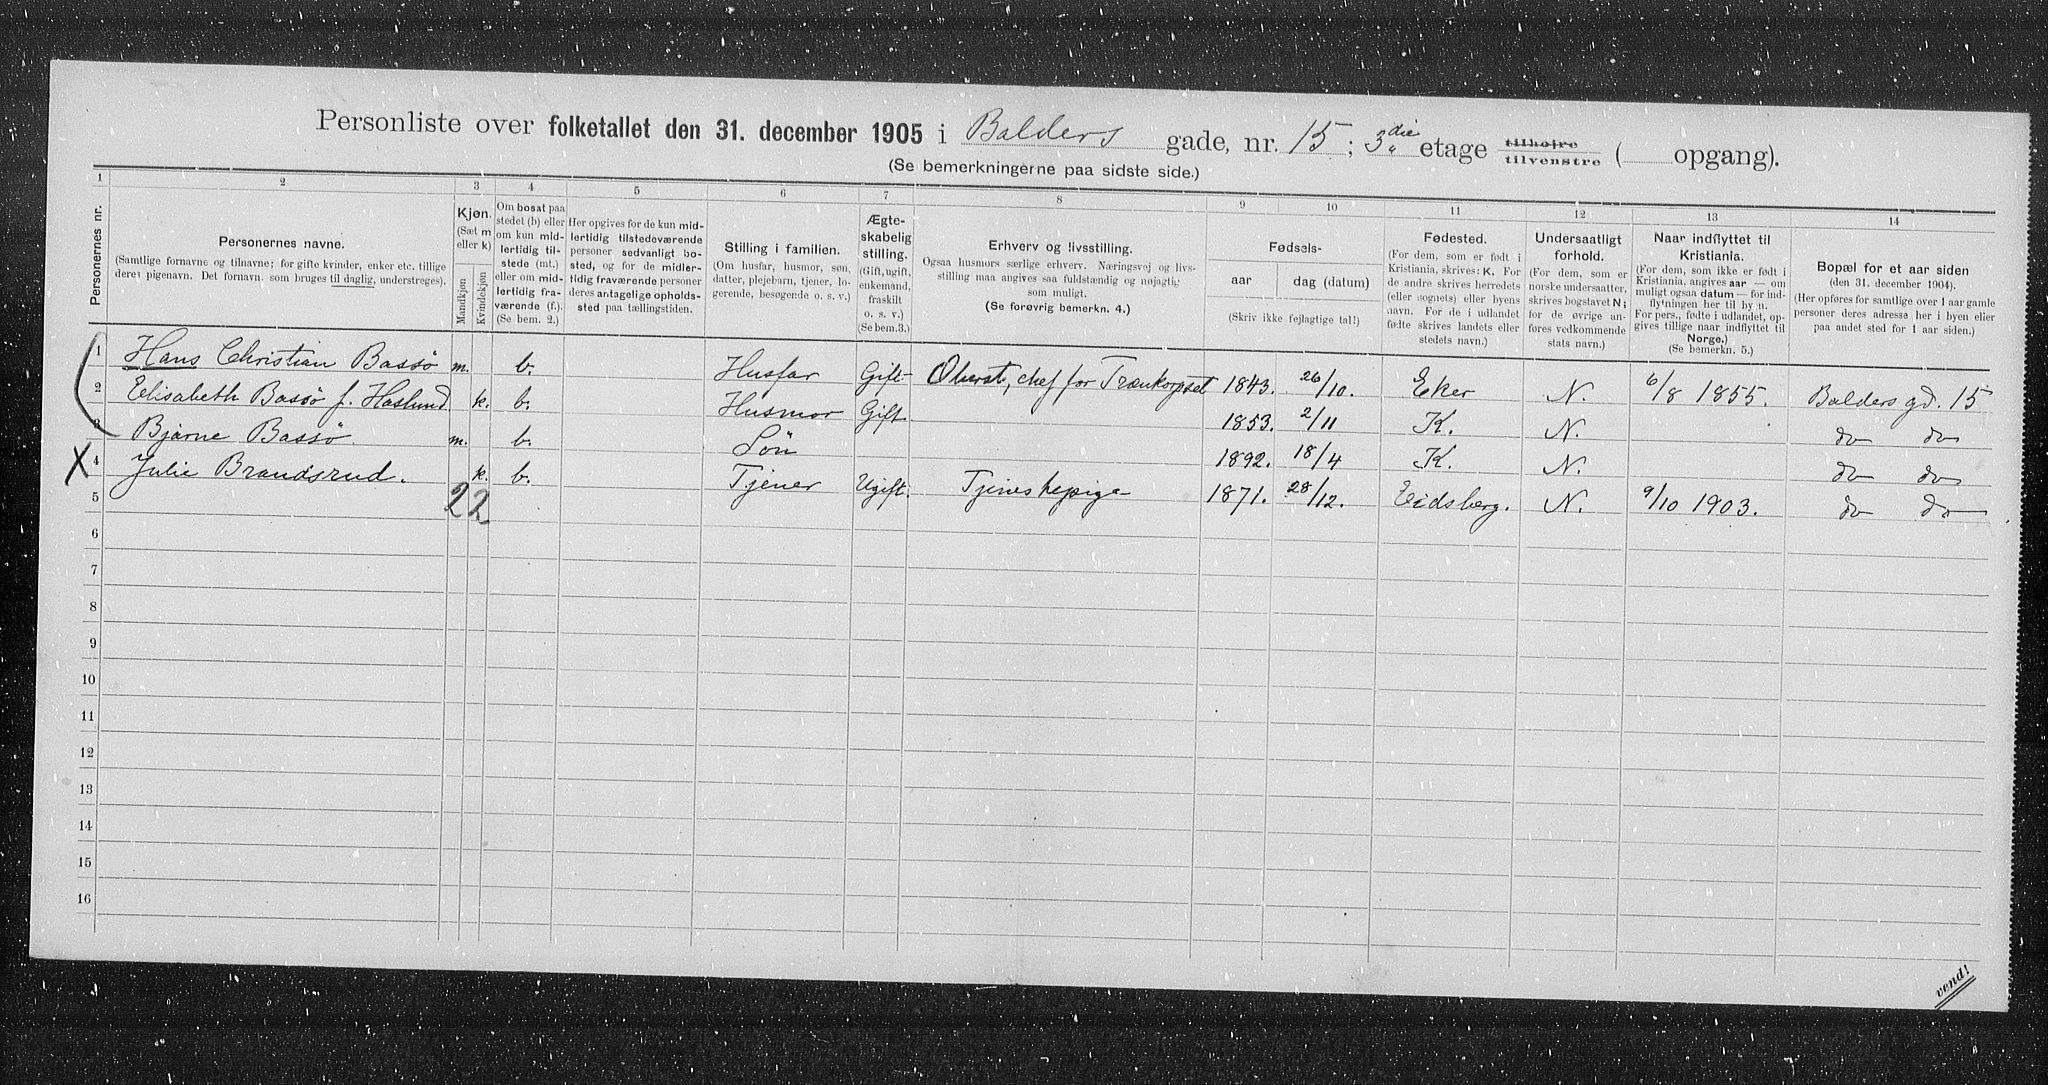 Personliste over folketallet den 31. december 1905 i Balders gade, nr. 15; 3die etage tilhøire tilvenstre ( opgang).
(Se bemerkningerne paa sidste side.)
1 2 3 4 5 6 7 8 9 10 11 12 13 14
Personernes nr.
Personernes navne.
(Samtlige fornavne og tilnavne; for gifte kvinder, enker etc. tillige deres pigenavn. Det fornavn, som bruges til daglig, understreges).
Kjøn.
(Sæt m eller k)
Mandkjøn
Kvindekjøn
Om bosat paa stedet (b) eller om kun midlertidig tilstede (mt.) eller om midlertidig fraværende (f.). (Se bem. 2.)
Her opgives for de kun midlertidig tilstedeværende personer sedvanligt bosted, og for de midlertidig fraværende personer deres antagelige opholdssted paa tællingstiden.
Stilling i familien.
(Om husfar, husmor, søn, datter, plejebarn, tjener, logerende, besøgende o. s. v.)
Ægteskabelig stilling.
(Gift, ugift, enkemand, fraskilt o. s. v.)
(Se bem. 3.)
Erhverv og livsstilling.
Ogsaa husmors særlige erhverv. Næringsvej og livsstilling maa angives saa fuldstændig og nøjagtig som muligt.
(Se forøvrig bemerkn. 4.)
Fødsels-
aar
dag (datum)
(Skriv ikke fejlagtige tal!)
Fødested.
(For dem, som er født i Kristiania, skrives: K. For de andre skrives herredets (eller sognets) eller byens navn. For de i udlandet fødte skrives landets eller stedets navn.)
Undersaatligt forhold.
(For dem, som er norske undersaatter, skrives bogstavet N; for de øvrige anføres vedkommende stats navn.)
Naar indflyttet til Kristiania.
(For dem, som ikke er født i Kristiania, angives aar — om muligt ogsaa datum — for indflytningen her til byen. For pers., fødte i udlandet, opgives tillige naar indflyttet til Norge.)
(Se bemerkn. 5.)
Bopæl for et aar siden
(den 31. december 1904).
(Her opføres for samtlige over 1 aar gamle personer deres adresse her i byen eller paa andet sted for 1 aar siden.)
1 Hans Christian Bassø m. b. Husfar Gift Oberst, chef for Trænkorpset 1843. 26/10. Eker N. 6/8 1855. Balders gd. 15
2 Elisabeth Bassø f. Haslund k. b. Husmor Gift 1853. 2/11 K. N. do do
3 Bjarne Bassø m. b. Søn 1892. 18/4 K. N. do do
X 4 Julie Brandsrud. k. b. Tjener Ugift. Tjenestepige 1871. 28/12. Eidsberg. N. 9/10 1903. do do
5 22
6
7
8
9
10
11
12
13
14
15
16
vend!